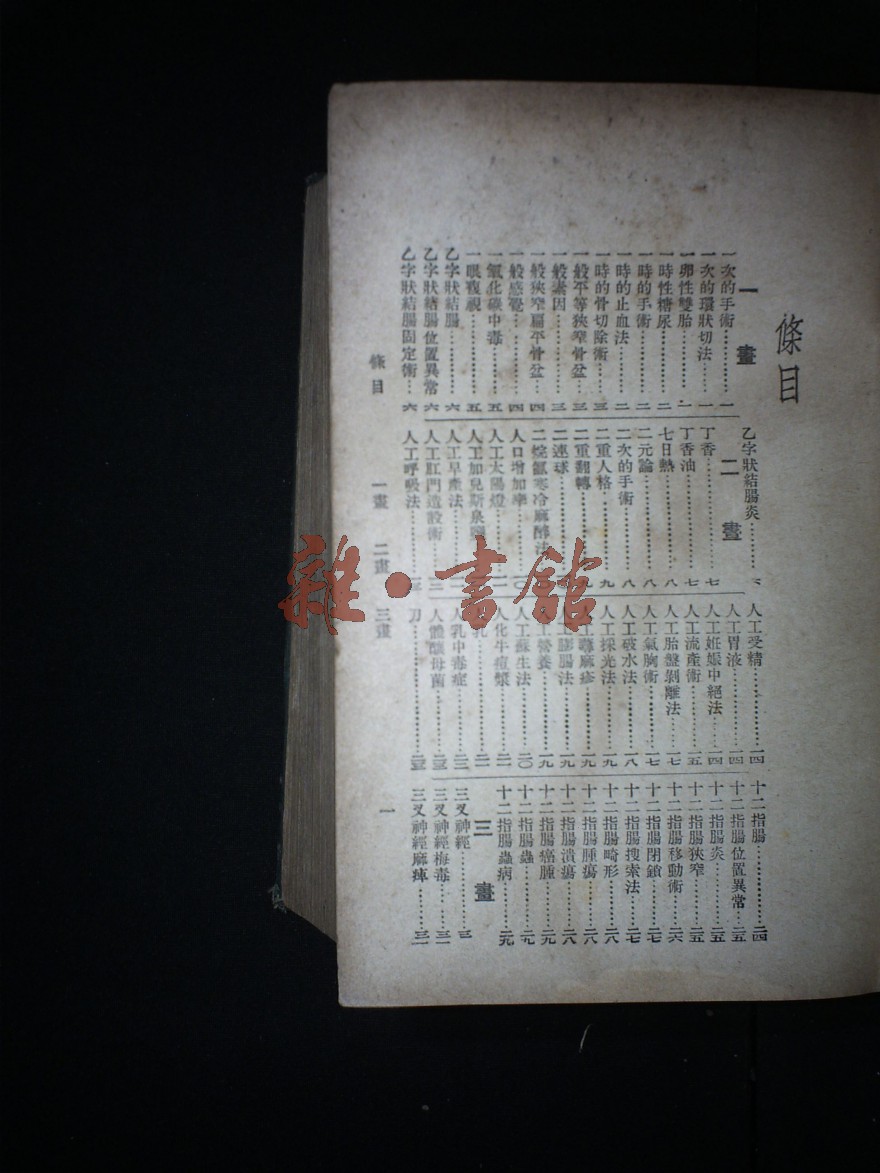 條目
一畫
一次的手術……一
一次的環狀切法……一
一卵性雙胎……一
一時性糖尿……二
一時的手術……二
一時的止血法……二
一時的骨切除術……三
一般平等狹窄骨盆……三
一般素因……三
一般狹窄扁平骨盆……四
一般感覺……四
一氧化碳中毒……五
一眼複視……五
乙字狀結腸……六
乙字狀結腸位置異常……六
乙字狀結腸固定術……六
乙字狀結腸炎……六
二畫
丁香……七
丁香油……七
七日熱……八
二元論……八
二次的手術……八
二重人格……九
二重翻轉……九
二連球
二烷氯寒冷麻醉法
人口增加率……一〇
人工太陽燈……一一
人工加兒斯泉鹽
人工早產法
人工肛門造設術……一三
人工呼吸法
人工受精……一四
人工胃液……一四
人工妊娠中絕法……一四
人工流產術……一五
人工胎盤剝離法……一七
人工氣胸術……一七
人工破水法……一八
人工採光法……一九
人工蕁麻疹……一九
人工膨腸法……一九
人工營養……一九
人工蘇生法……二〇
人化牛痘漿……二一
人乳……二一
人乳中毒症……二三
人體釀母菌……二三
刀……二三
十二指腸……二四
十二指腸位置異常……二五
十二指腸炎……二五
十二指腸狹窄……二五
十二指腸移動術……二六
十二指腸閉鎖……二七
十二指腸搜索法……二七
十二指腸畸形……二八
十二指腸腫瘍……二八
十二指腸潰瘍……二八
十二指腸癌腫……二九
十二指腸蟲……二九
十二指腸蟲病……二九
三畫
三叉神經……三一
三叉神經梅毒……三一
三叉神經麻痺……三一
條目 一畫 二畫 三畫 一
雜·書館